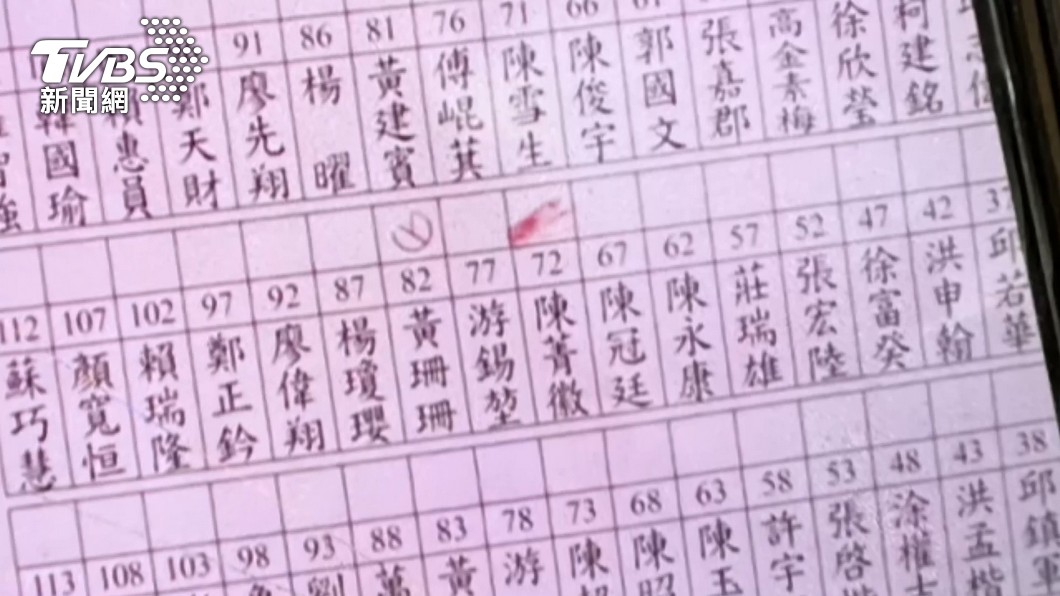 TVBS
新聞網
91 86 81 76 71 66
韓國瑜 賴惠員 鄭天財 廖先翔 楊曜 黃建賓 傅崐萁 陳雪生 陳俊宇 郭國文 張嘉郡 高金素梅 徐欣瑩 柯建銘
112 107 102 97 92 87 82 77 72 67 62 57 52 47 42 37
蘇巧慧 顏寬恒 賴瑞隆 鄭正鈐 廖偉翔 楊瓊瓔 黃珊珊 游錫堃 陳菁徽 陳冠廷 陳永康 莊瑞雄 張宏陸 徐富癸 洪申翰 邱若華
113 108 103 98 93 88 83 78 73 68 63 58 53 48 43 38
劉 萬 黃 游 陳 陳 陳玉 許宇 張啓 涂權 洪孟楷 邱鎮軍